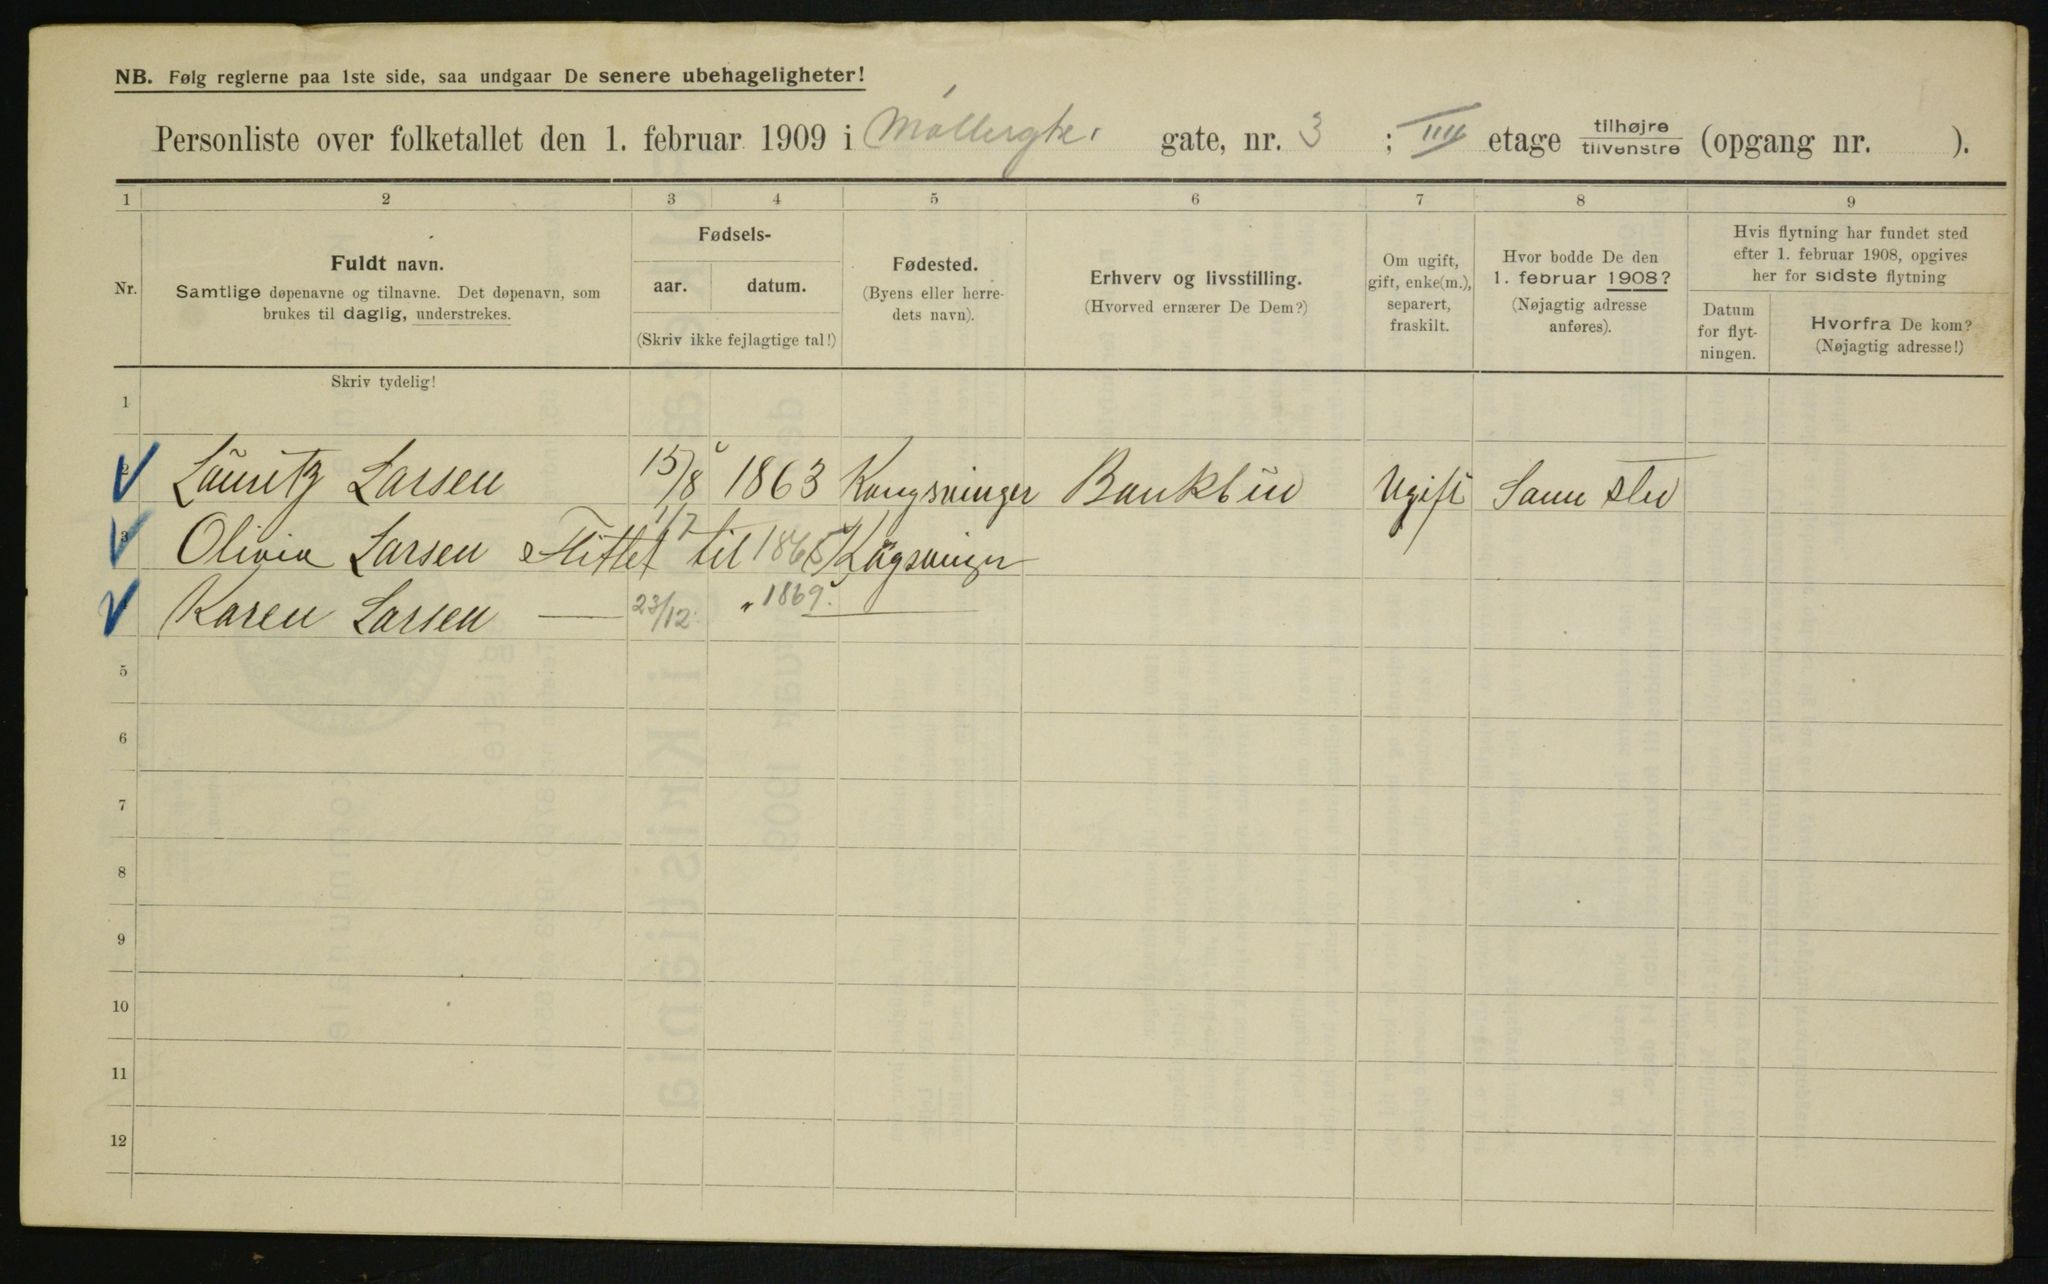 NB. Følg reglerne paa 1ste side, saa undgaar De senere ubehageligheter!
Personliste over folketallet den 1. februar 1909 i Møllergt. gate, nr. 3 ; III etage tilhøjre tilvenstre (opgang nr. ).
1 2 3 4 5 6 7 8 9
Nr.
Fuldt navn.
Samtlige døpenavne og tilnavne. Det døpenavn, som
brukes til daglig, understrekes.
Fødsels-
aar. datum.
(Skriv ikke fejlagtige tal!)
Fødested.
(Byens eller herre-
dets navn).
Erhverv og livsstilling.
(Hvorved ernærer De Dem?)
Om ugift,
gift, enke(m.),
separert,
fraskilt.
Hvor bodde De den
1. februar 1908?
(Nøjagtig adresse
anføres).
Hvis flytning har fundet sted
efter 1. februar 1908, opgives
her for sidste flytning
Datum
for flyt-
ningen.
Hvorfra De kom?
(Nøjagtig adresse!)
Skriv tydelig!
1
2 Lauritz Larsen 15/8 1863 Kongsvinger Bankbud Ugift Samme sted
3 Olivia Larsen Flittet 1/7 til 1865 Kogsvinger
Karen Larsen — 23/12 " 1869 —
5
6
7
8
9
10
11
12